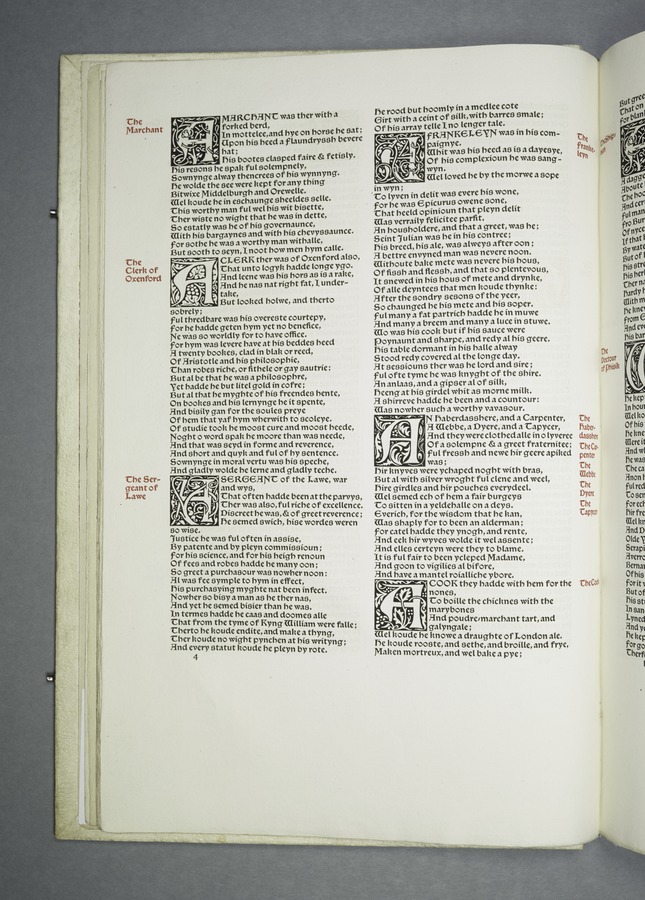 The
Marchant
A MARCHANT was ther with a
forked berd,
In mottelee, and hye on horse he sat;
Upon his heed a Flaundryssh bevere
hat;
His bootes clasped faire & fetisly.
His resons he spak ful solempnely,
Sownynge alway thencrees of his wynnyng.
He wolde the see were kept for any thing
Bitwixe Middelburgh and Orewelle.
Wel koude he in eschaunge sheeldes selle.
This worthy man ful wel his wit bisette,
Ther wiste no wight that he was in dette,
So estatly was he of his governaunce,
With his bargaynes and with his chevyssaunce.
For sothe he was a worthy man withalle,
But sooth to seyn, I noot how men hym calle.
The
Clerk of
Oxenford
A CLERK ther was of Oxenford also,
That unto logyk hadde longe ygo.
And leene was his hors as is a rake,
And he nas nat right fat, I under-
take,
But looked holwe, and therto
sobrely;
Ful thredbare was his overeste courtepy,
For he hadde geten hym yet no benefice,
Ne was so worldly for to have office.
For hym was levere have at his beddes heed
A twenty bookes, clad in blak or reed,
Of Aristotle and his philosophie,
Than robes riche, or fithele or gay sautrie:
But al be that he was a philosophre,
Yet hadde he but litel gold in cofre;
But al that he myghte of his freendes hente,
On bookes and his lernynge he it spente,
And bisily gan for the soules preye
Of hem that yaf hym wherwith to scoleye.
Of studie took he moost cure and moost heede,
Noght o word spak he moore than was neede,
And that was seyd in forme and reverence,
And short and quyk and ful of hy sentence.
Sownynge in moral vertu was his speche,
And gladly wolde he lerne and gladly teche.
The Ser-
geant of
Lawe
A SERGEANT of the Lawe, war
and wys,
That often hadde been at the parvys,
Ther was also, ful riche of excellence.
Discreet he was, & of greet reverence;
He semed swich, hise wordes weren
so wise.
Justice he was ful often in assise,
By patente and by pleyn commissioun;
For his science, and for his heigh renoun
Of fees and robes hadde he many oon;
So greet a purchasour was nowher noon:
Al was fee symple to hym in effect,
His purchasyng myghte nat been infect.
Nowher so bisy a man as he ther nas,
And yet he semed bisier than he was.
In termes hadde he caas and doomes alle
That from the tyme of Kyng William were falle;
Therto he koude endite, and make a thyng,
Ther koude no wight pynchen at his writyng;
And every statut koude he pleyn by rote.
4
He rood but hoomly in a medlee cote
Girt with a ceint of silk, with barres smale;
Of his array telle I no lenger tale.
The
Franke-
leyn
A FRANKELEYN was in his com-
paignye.
Whit was his heed as is a dayesye,
Of his complexioun he was sang-
wyn.
Wel loved he by the morwe a sope
in wyn;
To lyven in delit was evere his wone,
For he was Epicurus owene sone,
That heeld opinioun that pleyn delit
Was verraily felicitee parfit.
An housholdere, and that a greet, was he;
Seint Julian was he in his contree;
His breed, his ale, was alweys after oon;
A bettre envyned man was nevere noon.
Withoute bake mete was nevere his hous,
Of fissh and flessh, and that so plentevous,
It snewed in his hous of mete and drynke,
Of alle deyntees that men koude thynke:
After the sondry sesons of the yeer,
So chaunged he his mete and his soper.
Ful many a fat partrich hadde he in muwe
And many a breem and many a luce in stuwe.
Wo was his cook but if his sauce were
Poynaunt and sharpe, and redy al his geere.
His table dormant in his halle alway
Stood redy covered al the longe day.
At sessiouns ther was he lord and sire;
Ful ofte tyme he was knyght of the shire.
An anlaas, and a gipser al of silk,
Heeng at his girdel whit as morne milk.
A shirreve hadde he been and a countour:
Was nowher such a worthy vavasour.
The
Habr-
dassher
The Car-
penter
The
Webbe
The
Dyere
The
Tapycer
AN Haberdasshere, and a Carpenter,
A Webbe, a Dyere, and a Tapycer,
And they were clothed alle in o lyveree
Of a solempne & a greet fraternitee;
Ful fressh and newe hir geere apiked
was;
Hir knyves were ychaped noght with bras,
But al with silver wroght ful clene and weel,
Hire girdles and hir pouches everydeel.
Wel semed ech of hem a fair burgeys
To sitten in a yeldehalle on a deys.
Everich, for the wisdom that he kan,
Was shaply for to been an alderman;
For catel hadde they ynogh, and rente,
And eek hir wyves wolde it wel assente;
And elles certeyn were they to blame.
It is ful fair to been ycleped Madame,
And goon to vigilies al bifore,
And have a mantel roialliche ybore.
A COOK they hadde with hem for the
nones,
To boille the chicknes with the
marybones
And poudre/marchant tart, and
galyngale;
Wel koude he knowe a draughte of London ale.
He koude rooste, and sethe, and broille, and frye,
Maken mortreux, and wel bake a pye;
The
Doctour
of Phisik